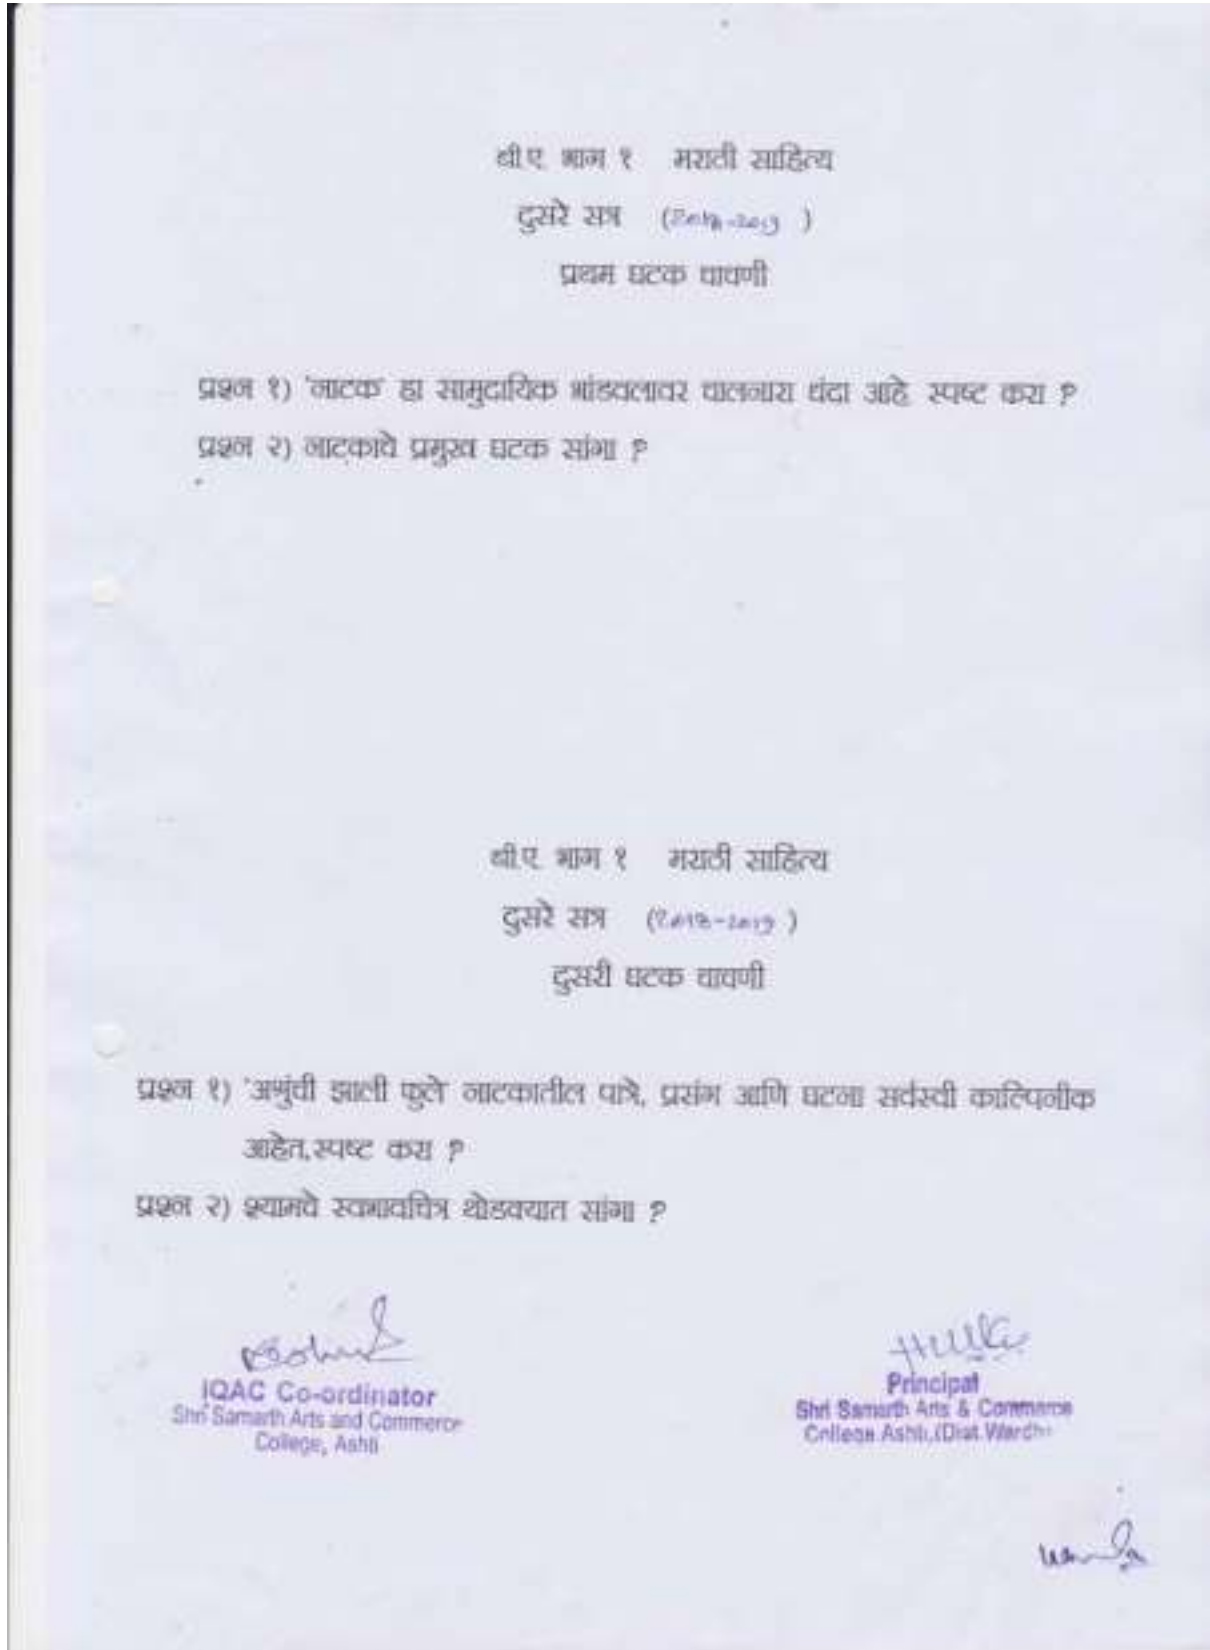 बी.ए. भाग १ मराठी साहित्य
दुसरे सत्र (2018-2019 )
प्रथम घटक चाचणी
प्रश्न १) 'नाटक' हा सामुदायिक भांडवलावर चालनारा धंदा आहे. स्पष्ट करा ?
प्रश्न २) नाटकाचे प्रमुख घटक सांगा ?
बी.ए. भाग १ मराठी साहित्य
दुसरे सत्र (2018-2019 )
दुसरी घटक चाचणी
प्रश्न १) 'अश्रुंची झाली फुले' नाटकातील पात्रे, प्रसंग आणि घटना सर्वस्वी काल्पिनीक
आहेत,स्पष्ट करा ?
प्रश्न २) श्यामचे स्वभावचित्र थोडक्यात सांगा ?
IQAC Co-ordinator
Shri Samarth Arts and Commerce
College, Ashti
Principal
Shri Samarth Arts & Commerce
College Ashti,(Dist.Wardh